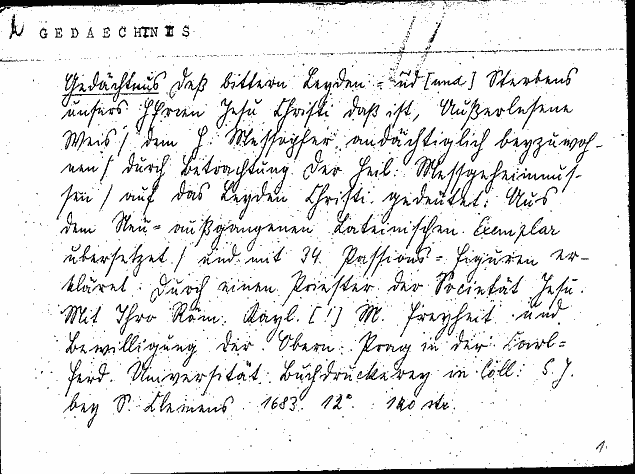 GEDAECHTNIS
Gedächtnus deß bittern Leyden = ūd [und] Sterbens
unsers HErren Jesu Christi daß ist, Außerlesene
Weis / dem H. Messopfer andächtiglich beyzuwoh-
nen / durch Betrachtung der Heil. Messgeheimnus-
sen / auf das Leyden Christi gedeutet. Aus
dem Neu = außgangenen Lateinischen Exemplar
übersetzet / und mit 34 Passions = Figuren er-
kläret. Durch einen Priester der Societät Jesu.
Mit Ihro Röm. Kayl. [!] M. Freyheit und
Bewilligung der Obern. Prag in der Carl=
Ferd. Universität Buchdruckerey in Coll: S. J.
bey S. Clemens 1683. 12° 140 str.
1.